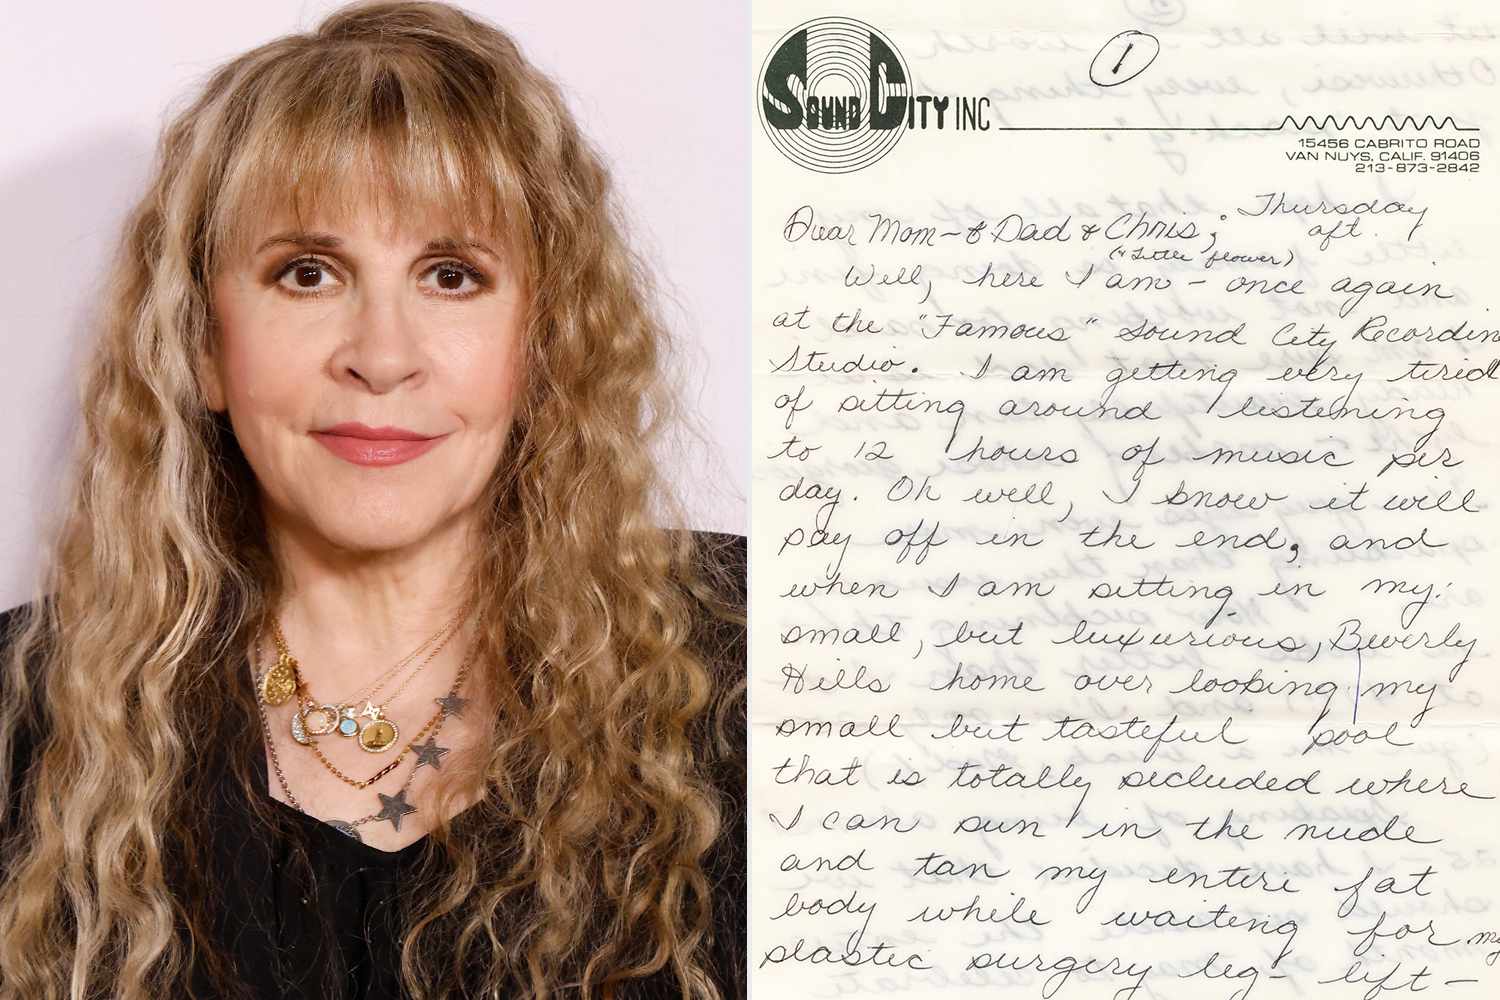 1
SOUND CITY INC
15456 CABRITO ROAD
VAN NUYS, CALIF. 91406
213-873-2842
Thursday
aft.
Dear Mom - & Dad & Chris,;
(& Little flower)
Well, here I am - once again
at the "Famous" Sound City Recordin
Studio. I am getting very tired
of sitting around listening
to 12 hours of music per
day. Oh well, I know it will
pay off in the end, and
when I am sitting in my:
small, but luxurious, Beverly
Hills home over looking my
small but tasteful pool
that is totally secluded where
I can sun in the nude
and tan my entire fat
body while waiting for my
plastic surgery leg - lift -